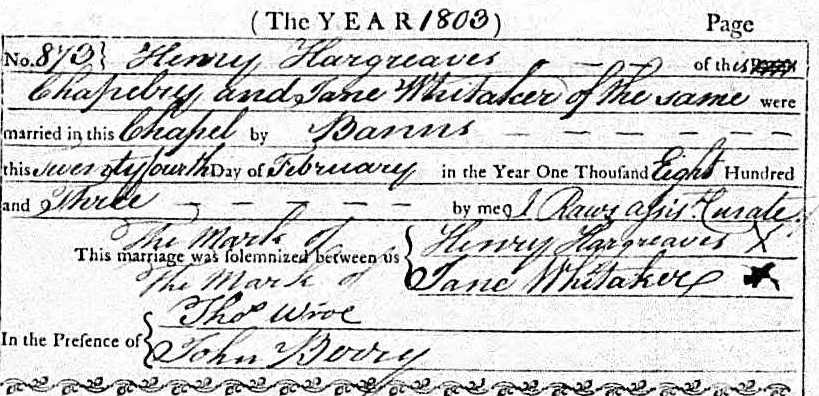 (The YEAR 1803) Page
No. 873 } Henry Hargreaves — — of this
Chapelry and Jane Whitaker of the same were
married in this Chapel by Banns — — — — — —
this twenty fourth Day of February in the Year One Thousand Eight Hundred
and Three — — — — — by me J Raws assist. Curate.
The Mark of Henry Hargreaves X
This marriage was solemnized between us {
The Mark of Jane Whitaker X
Thos Wroe
In the Presence of {
John Berry